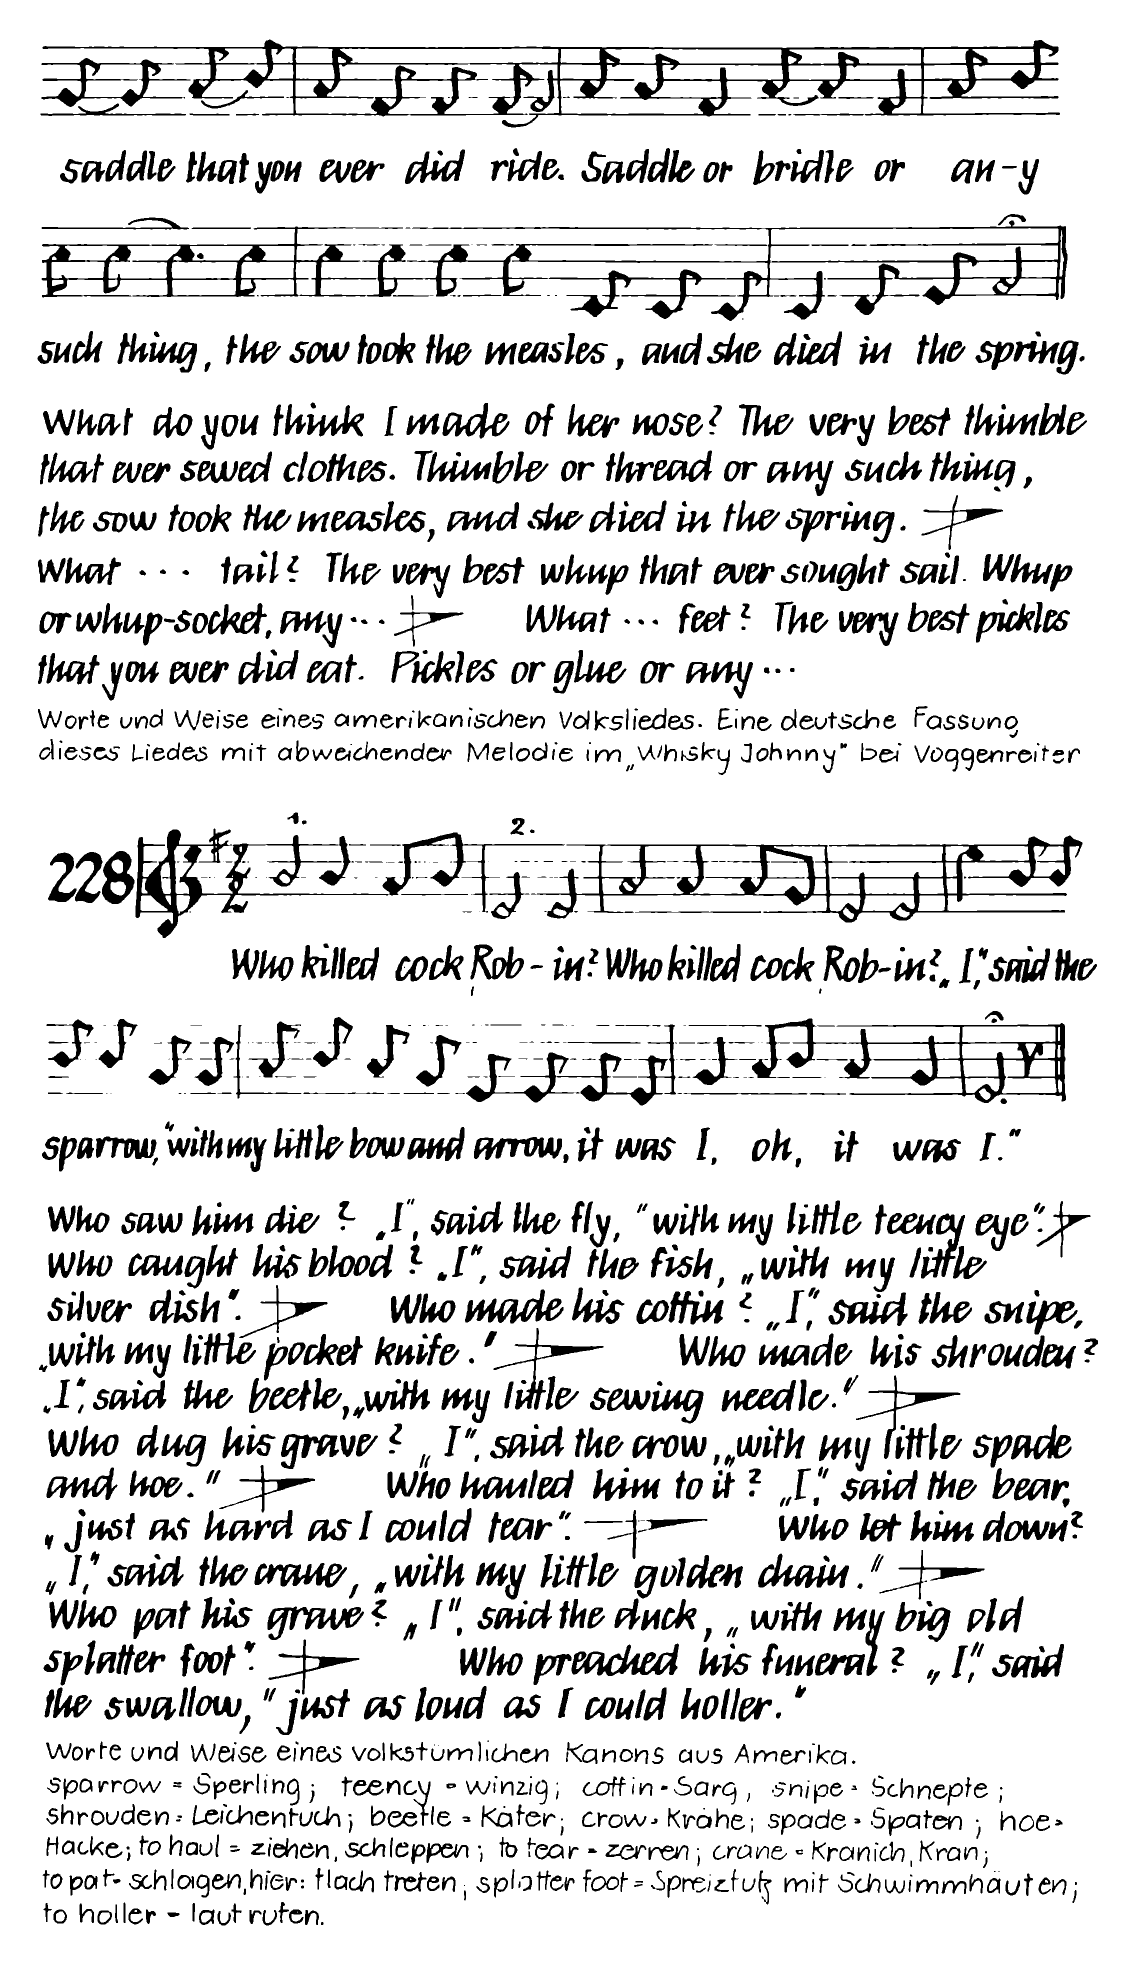 saddle that you ever did ride. Saddle or bridle or an-y
such thing, the sow took the measles, and she died in the spring.
What do you think I made of her nose? The very best thimble
that ever sewed clothes. Thimble or thread or any such thing,
the sow took the measles, and she died in the spring.
What ... tail? The very best whup that ever sought sail. Whup
or whup-socket, any... What ... feet? The very best pickles
that you ever did eat. Pickles or glue or any ...
Worte und Weise eines amerikanischen Volksliedes. Eine deutsche Fassung
dieses Liedes mit abweichender Melodie im „Whisky Johnny" bei Voggenreiter
1. 2.
228 2/2
Who killed cock Rob-in? Who killed cock Rob-in? „I," said the
sparrow, "with my little bow and arrow, it was I, oh, it was I."
Who saw him die? „I", said the fly, "with my little teency eye".
Who caught his blood? „I", said the fish, „with my little
silver dish". Who made his coffin? „I", said the snipe,
„with my little pocket knife." Who made his shrouden?
„I", said the beetle, „with my little sewing needle."
Who dug his grave? „I", said the crow, „with my little spade
and hoe." Who hauled him to it? „I", said the bear,
„just as hard as I could tear". Who let him down?
„I", said the crane, „with my little golden chain."
Who pat his grave? „I", said the duck, „with my big old
splatter foot". Who preached his funeral? „I", said
the swallow, "just as loud as I could holler."
Worte und Weise eines volkstümlichen Kanons aus Amerika.
sparrow = Sperling; teency = winzig; coffin = Sarg, snipe = Schnepfe;
shrouden = Leichentuch; beetle = Käfer; crow = Krähe; spade = Spaten; hoe =
Hacke; to haul = ziehen, schleppen; to tear = zerren; crane = Kranich, Kran;
to pat = schlagen, hier: flach treten; splatter foot = Spreizfuß mit Schwimmhäuten;
to holler = laut rufen.